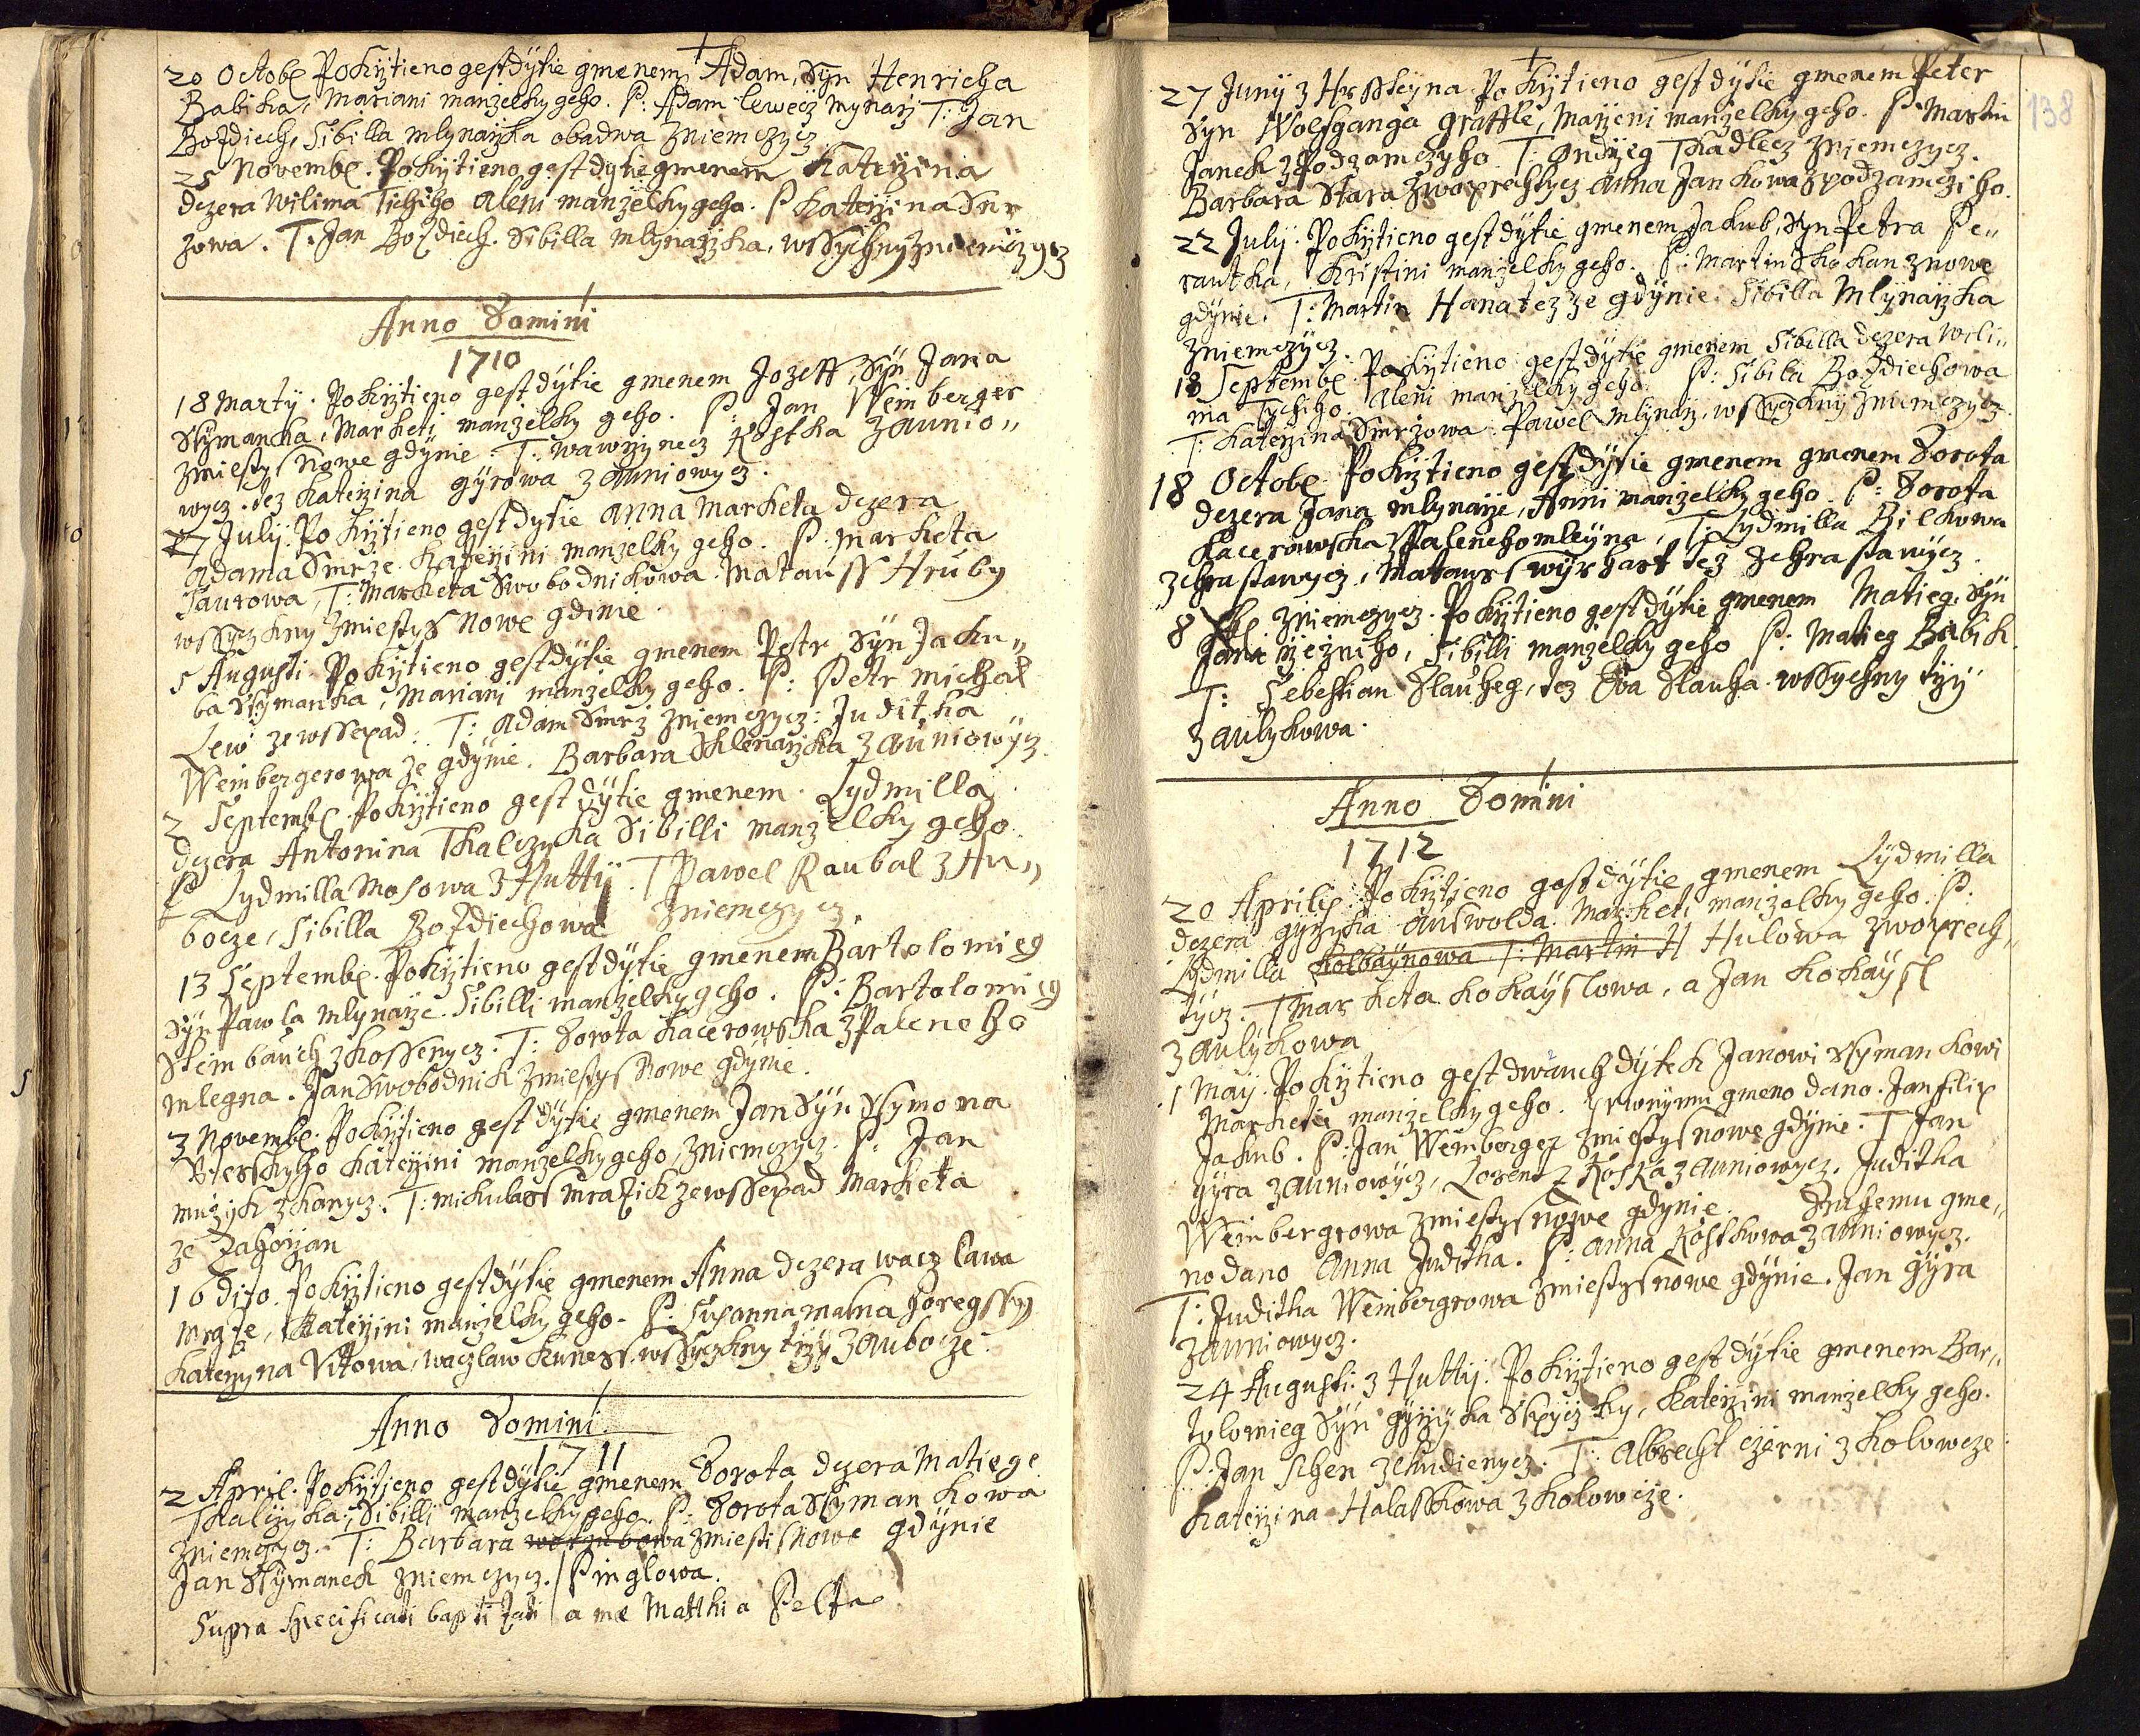 20 Octob. Pokrztieno gest dytie gmenem Adam, Syn Henricha
Babika, Mariani manzelky geho. P: Adam lewecz mynarz T: Jan
Bozdiech, Sibilla mlynarzka obadwa zniemczycz
25 Novemb. Pokrztieno gest dytie gmenem Katerzina
dczera Wilima Tichiho Aleni manzelky geho. P Katerzina Smr
zowa. T: Jan Bozdiech. Sibilla mlynarzka, wssychny zniemczycz
Anno Domini
1710
18 Martÿ. Pokrztieno gest dytie gmenem Jozeff, Syn Jana
Ssymanka, Marketi manzelky geho. P: Jan Weinberger
zmiestys Nowe gdynie. T: wawrzynecz Kostka zaunio„
wycz. tez Katerzina gyrowa zauniowycz.
27 July. Pokrztieno gest dytie Anna Marketa dczera
Adama Smrze Katerzini manzelky geho. P: Marketa
Taurowa, T: Marketa Swobodnikowa Matauss Hruby
wssyczkny zmiestys Nowe gdinie.
5 Augusti. Pokrztieno gest dytie gmenem Petr Syn Jaku„
ba Ssymanka, Mariani manzelky geho. P: Petr Michal
Lew zewsserad: T: Adam Smrz zniemczycz: Juditka
Weinbergerowa ze gdynie. Barbara Sklenarzka zauniowycz.
2 Septemb. Pokrztieno gest dytie gmenem Lydmilla
dczera Antonina Tkalczyka Sibilli manzelky geho
P Lydmilla Mosowa z Huttÿ. T Pawel Raubal z Au„
bocze, Sibilla Bozdiechowa zniemczycz.
13 Septemb. Pokrztieno gest dytie gmenem Bartolomieg
Syn Pawla mlynarze. Sibilli manzelky geho. P: Bartolomieg
Steinbauch z Kossenycz. T: Dorota Kacerowska z Paleneho
mlegna. Jan Swobodnik zmiestys Nowe gdynie.
3 Novemb. Pokrztieno gest dytie gmenem Jan Syn Ssymona
Katerzini manzelky geho, zniemczycz. P: Jan
muzyk z kanycz. T: Mikulass Mrazik zewsserad Marketa
ze Zahorzan
16 dito. Pokrztieno gest dytie gmenem Anna dczera waczlawa
Katerzini manzelky geho. P: Susanna horegssy
Katerzyna Vitowa, waczlaw Kuness. wssyczkny trzy zaubocze.
Anno Domini
1711
2 April. Pokrztieno gest dytie gmenem Dorota dczera Matiege
Tkalczyka, Sibilli manzelky geho. P: Dorota Ssymankowa
zniemczycz. T: Barbara zmiestis Nowe gdynie
Jan Ssymanek zniemczycz. / Pinglowa.
Supra specificati baptizati a me Matthia Pelta
138
27 Juny z Hrssteyna. Pokrztieno gest dytie gmenem Peter
Syn Wolfganga Graffle, Marzeni manzelky geho. P: Martin
Janek z Podzamczyho. T: Ondrzeg Tkadlecz zniemczycz.
Barbara Stara zwoprechtycz Anna Jankowa z podzamcziho.
22 July. Pokrztieno gest dytie gmenem Jakub, Syn Petra Pe„
rautka, Kristini manzelky geho. P: Martin Skokan znowe
gdynie. T: Martin Hana tez ze gdynie. Sibilla Mlynarzka
zniemczycz.
18 Septemb. Pokrztieno gest dytie gmenem Sibilla dczera Wili„
ma Tychiho. Aleni manzelky geho. P: Sibila Bozdiechowa
T: Katerzina Smrzowa. Pawel Mlynarz, wssyczkny zniemczycz.
18 Octob. Pokrztieno gest dytie gmenem gmenem Dorota
dczera Jana mlynarze, Anni manzelky geho. P: Dorota
Kacerowska z Palenehomleyna, T: Lydmilla Bilkowa
zchrastawycz, Matauss wyrhart tez zchrastawycz.
8 zniemczycz. Pokrztieno gest dytie gmenem Matieg, Syn
Jana rzezniho, Sibilli manzelky geho P: Matieg Babik
T: Sebestian Dlauheg, tez Eva Dlauha wssychny tryÿ
zaulykowa.
Anno Domini
1712
20 Aprilis. Pokrztieno gest dytie gmenem Lydmilla
dczera gyrzyka Auswolda. Marketi manzelky geho. P:
Lydmilla Kolbaynowa T: Martin H Hulowa zwoprech„
tycz. T Marketa Kokayslowa, a Jan Kokaysl
zaulykowa
1 May. Pokrztieno gest dwauch dytek Janowi Ssymankowi
Marketie manzelky geho. Prwnymu gmeno dano. Jan filip
Jakub. P: Jan Weinberger zmiestys nowe gdynie. T Jan
gyra zauniowycz, Lorentz Koska zauniowycz. Juditka
Weinbergrowa zmiestys nowe gdynie. Druhemu gme„
no dano Anna Juditka. P: Anna Kostkowa zauniowycz.
T: Juditka Weinbergrowa zmiestys nowe gdynie. Jan gyra
zauniowycz.
24 Augusti. z Huttÿ. Pokrztieno gest dytie gmenem Bar„
tolomieg Syn gyrzyka Katerzini manzelky geho.
P: Jan Schen zchudienycz. T: Albrecht czerni z Kolowcze
Katerzina Halasskowa z Kolowcze.